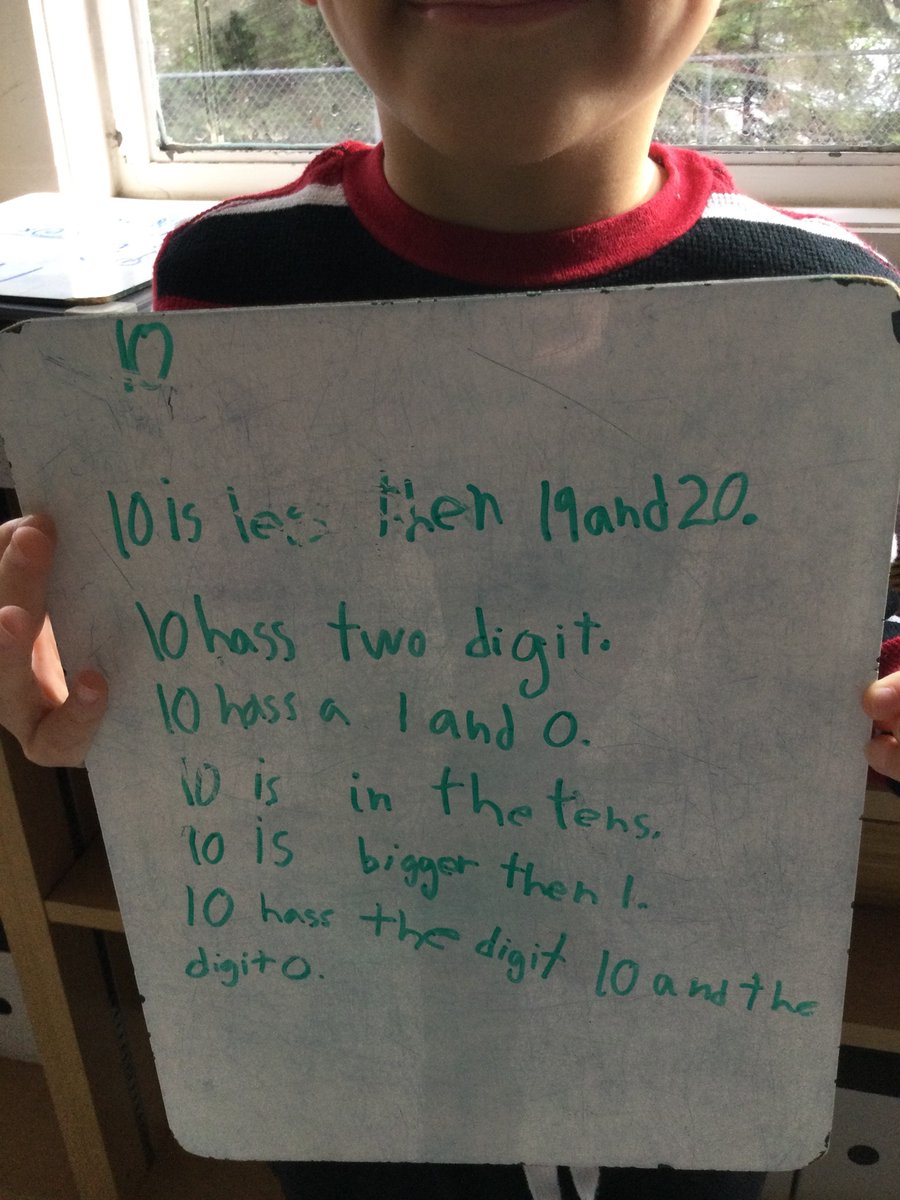 10
10 is less then 19 and 20.
10 hass two digit.
10 hass a 1 and 0.
10 is in the tens.
10 is bigger then 1.
10 hass the digit 10 and the
digit 0.